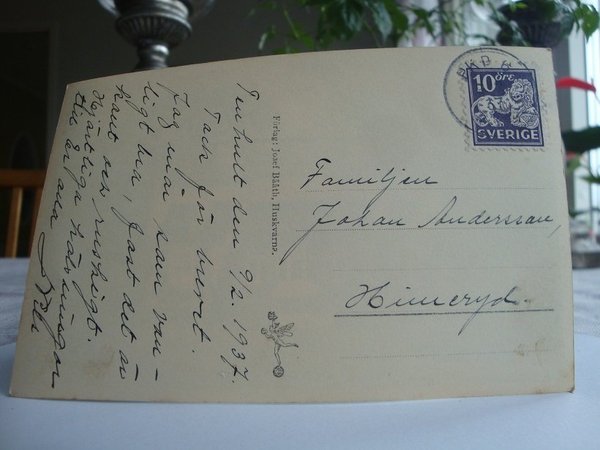 Tenhult den 9/2. 1937.
Tack för buret.
Jag mår som van-
ligt bra, fast det är
kant och ruskigt.
Hjärtliga hälsningar
till Er alla
Förlag: Josef Bååth, Huskvarna.
PKP
10 ÖRE
SVERIGE
Familjen
Johan Andersson,
Himeryd.